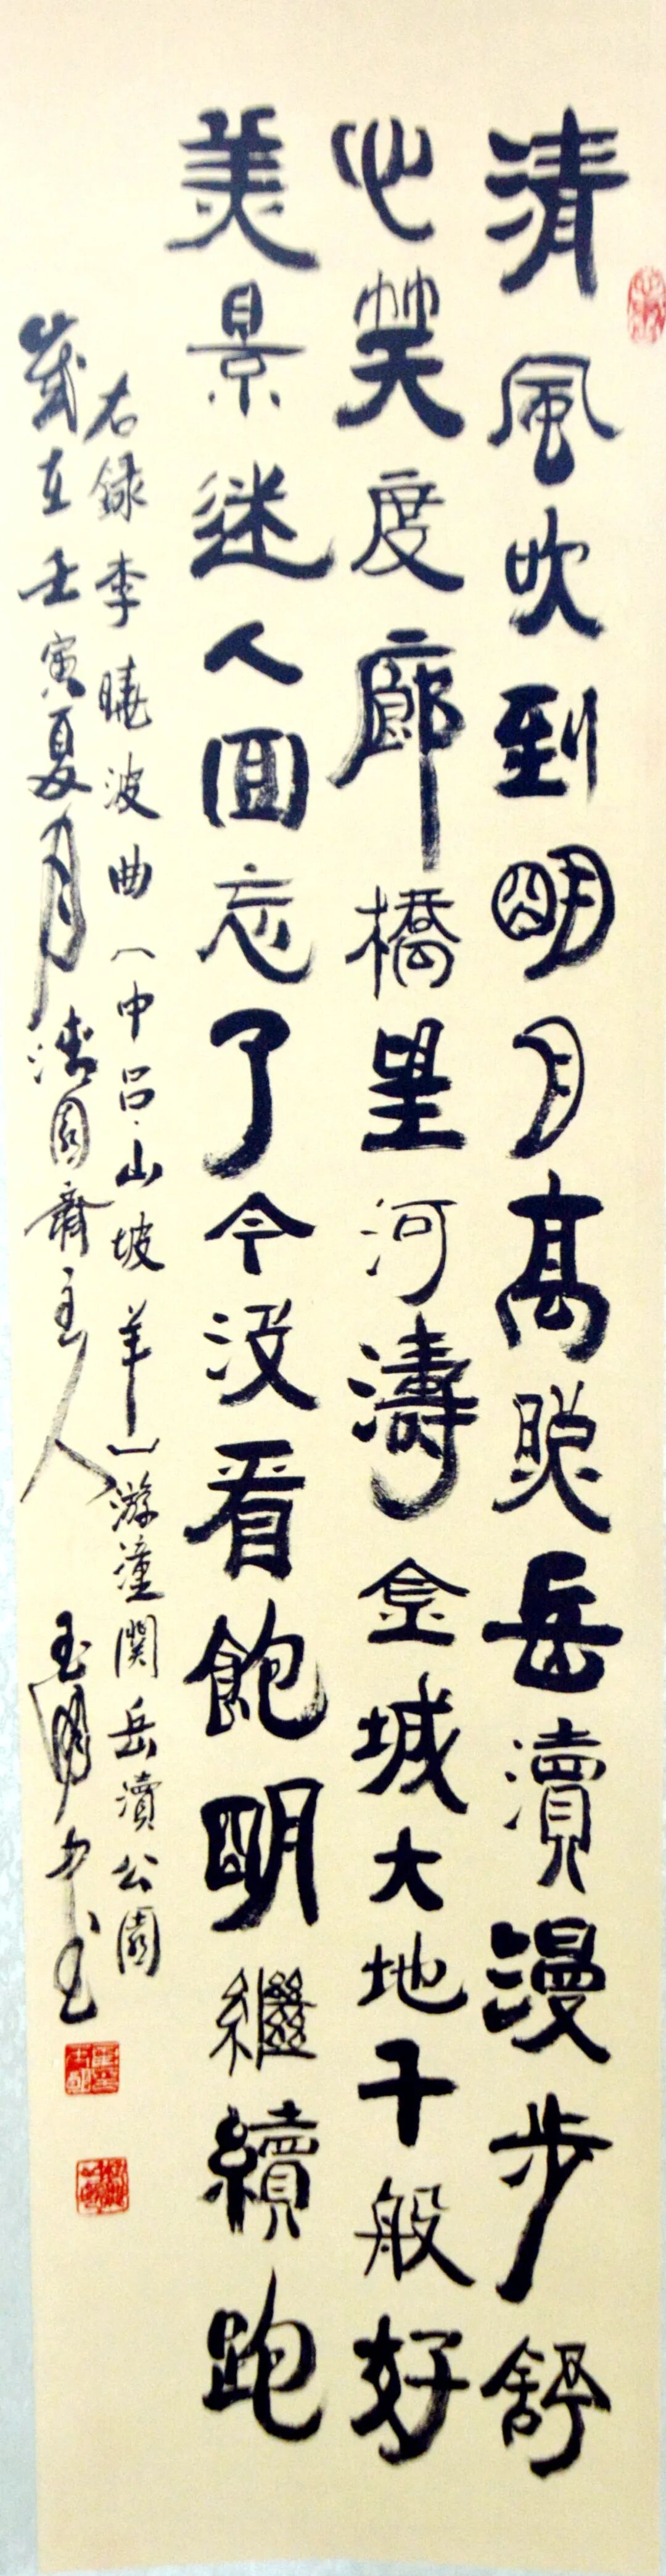 清風吹到明月高照岳瀆漫步舒
心笑度廊橋望河濤金城大地千般好
美景迷人回忘了今没看飽明繼續跑
右録李曉波曲（中吕·山坡羊）游潼關岳瀆公園
歲在壬寅夏月清園齋主人 玉明书